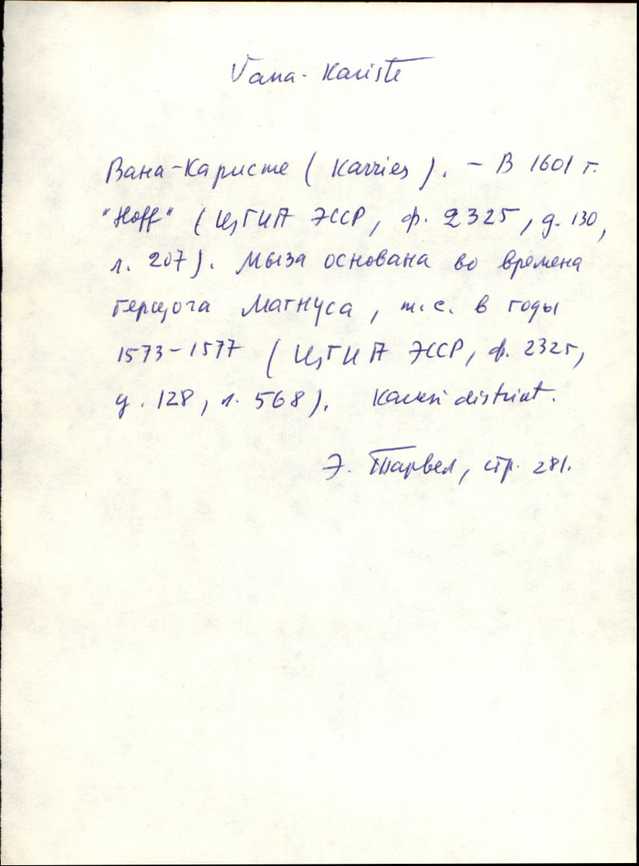 Vana-Kariste
Вана-Каристе (Karries). - В 1601 г.
"Hoff" (ЦГИА ЭССР, ф. 2325, д. 130,
л. 207). Мыза основана во времена
герцога Магнуса, т.е. в годы
1573-1577 (ЦГИА ЭССР, ф. 2325,
д. 128, л. 568). Karksi district.
Э. Тарвел, стр. 281.